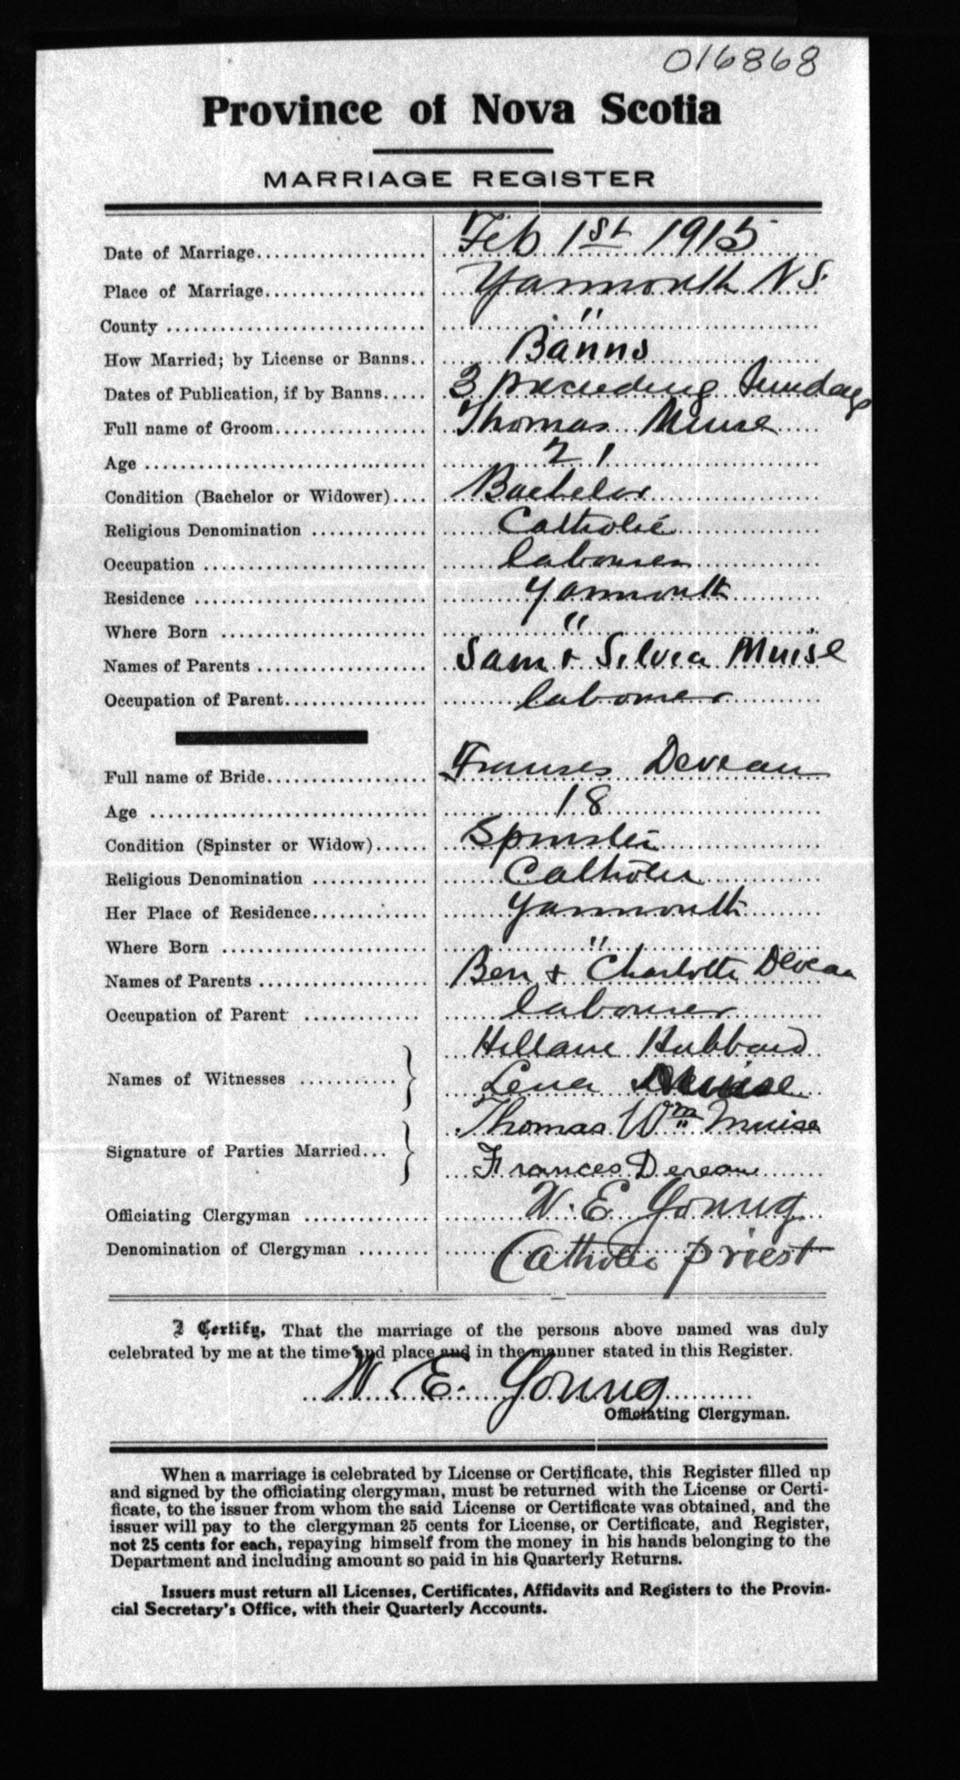 016868
Province of Nova Scotia
MARRIAGE REGISTER
Date of Marriage Feb 1st 1915
Place of Marriage Yarmouth N S.
County "
How Married; by License or Banns Banns
Dates of Publication, if by Banns 3 preceeding Sundays
Full name of Groom Thomas Muise
Age 21
Condition (Bachelor or Widower) Bachelor
Religious Denomination Catholic
Occupation labourer
Residence Yarmouth
Where Born "
Names of Parents Sam + Silvia Muise
Occupation of Parent labourer
Full name of Bride Franses Deveau
Age 18
Condition (Spinster or Widow) Spinster
Religious Denomination Catholic
Her Place of Residence Yarmouth
Where Born "
Names of Parents Ben + Charlotte Deveau
Occupation of Parent labourer
Hubbard
Names of Witnesses
Lena Muise
Thomas Wm Muise
Signature of Parties Married
Frances Deveau
Officiating Clergyman W. E Young
Denomination of Clergyman Catholic priest
I Certify, That the marriage of the persons above named was duly
celebrated by me at the time and place and in the manner stated in this Register.
W. E. Young
Officiating Clergyman.
When a marriage is celebrated by License or Certificate, this Register filled up
and signed by the officiating clergyman, must be returned with the License or Certi-
ficate, to the issuer from whom the said License or Certificate was obtained, and the
issuer will pay to the clergyman 25 cents for License, or Certificate, and Register,
not 25 cents for each, repaying himself from the money in his hands belonging to the
Department and including amount so paid in his Quarterly Returns.
Issuers must return all Licenses, Certificates, Affidavits and Registers to the Provin-
cial Secretary's Office, with their Quarterly Accounts.